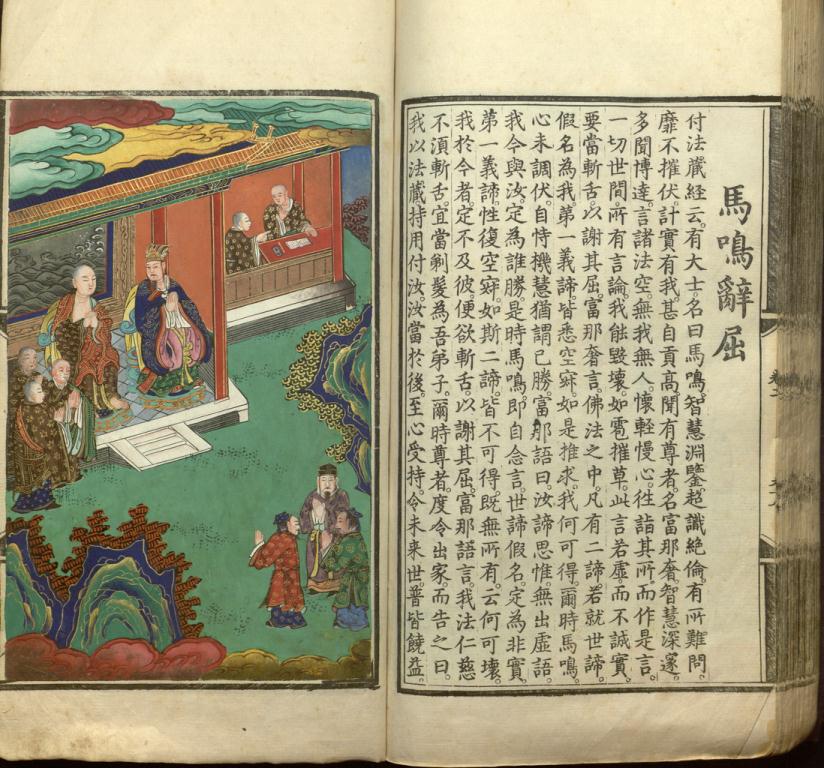 馬鳴辭屈
付法藏經云。有大士。名曰馬鳴。智慧淵鑒。超識絕倫。有所難問。
靡不摧伏。計實有我。甚自貢高。聞有尊者。名富那奢。智慧深邃。
多聞博達。言諸法空。無我無人。懷輕慢心。往詣其所。而作是言。
一切世間。所有言論。我能毀壞。如雹摧草。此言若虛。而不誠實。
要當斬舌。以謝其屈。富那奢言。佛法之中。凡有二諦。若就世諦。
假名為我。第一義諦。皆悉空寂。如是推求。我何可得。爾時馬鳴。
心未調伏。自恃機慧。猶謂已勝。富那語曰。汝諦思惟。無出虛語。
我今與汝。定為誰勝。是時馬鳴。即自念言。世諦假名。定為非實。
第一義諦。性復空寂。如斯二諦。皆不可得。既無所有。云何可壞。
我於今者。定不及彼。便欲斬舌。以謝其屈。富那語言。我法仁慈。
不須斬舌。宜當剃髮。為吾弟子。爾時尊者。度令出家。而告之曰。
我以法藏。持用付汝。汝當於後。至心受持。令未來世。普皆饒益。